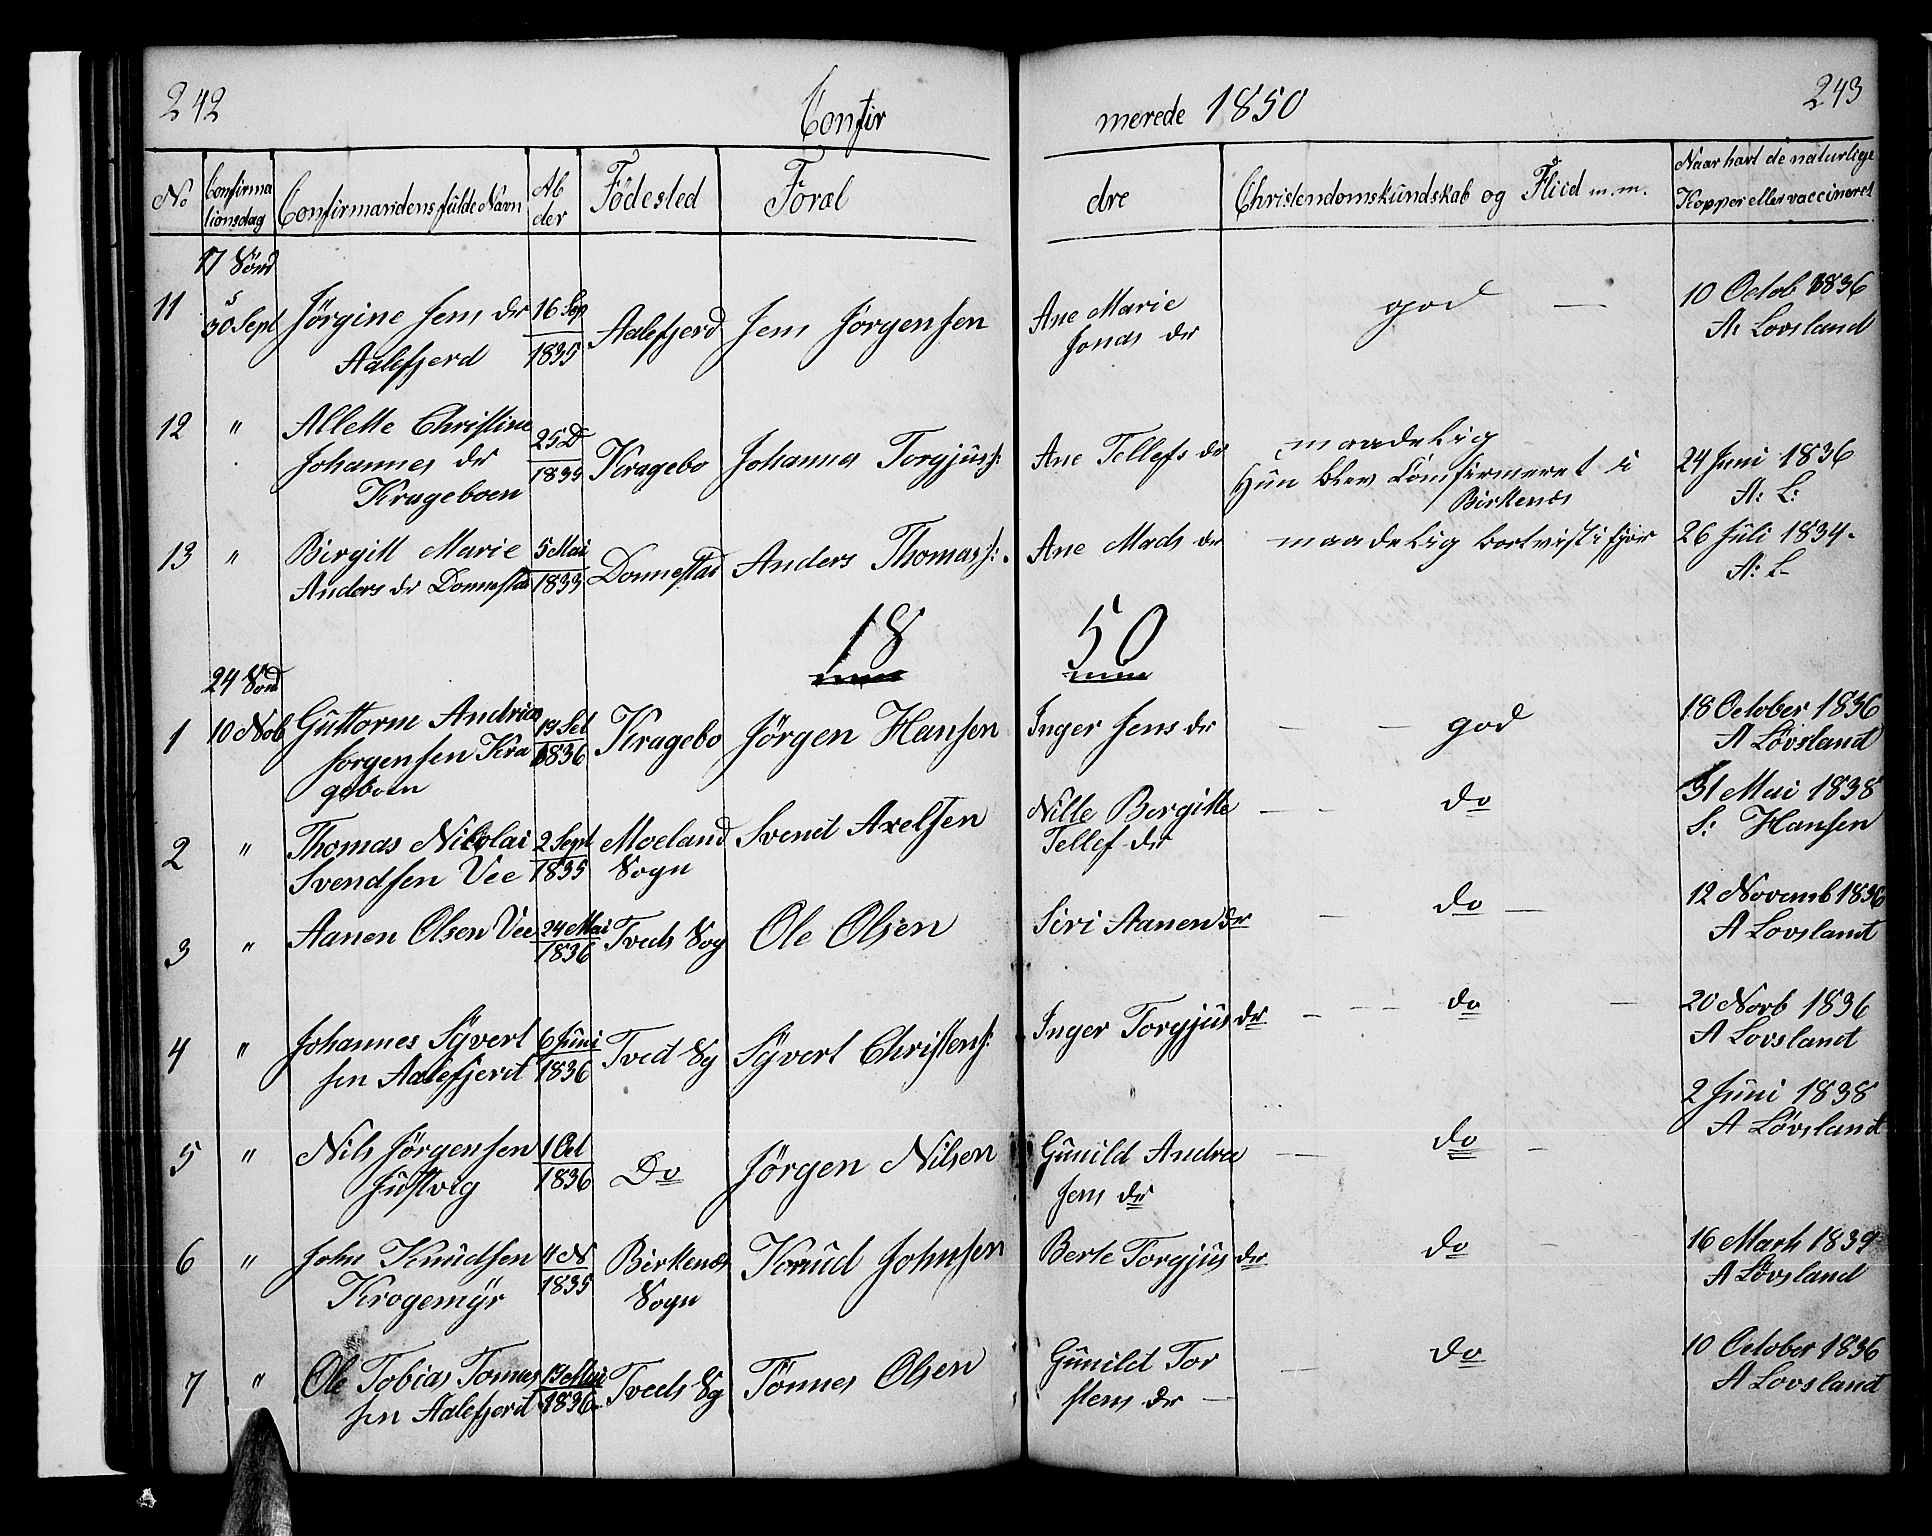 242
Confir
merede 1850
243
No
Confirma
tionsdag
Confirmandens fulde Navn
Al
der
Födested
Foræl
dre
Christendomskundskab og Fliid m.m.
Naar havt de naturlige
Kopper eller vaccineret
17 Sönd
11 30 Sept Jörgine Jens dr 16 Sep Aalefjerd Jens Jörgensen Ane Marie god — 10 Octob 1836
Aalefjerd 1835 Jonas dr A: Lovsland
12 " Allette Christine 25 D Kragebo Johannes Torgjuss: Ane Tellefs dr maadelig 24 Juni 1836
Johannes dr 1835 Hun blev Comfirmeret i A: L:
Krageboen Birkenes
13 " Birgitt Marie 5 Mai Donnestad Anders Thomass: Ane Mads dr maadelig bortvist i fjor 26 Juli 1834.
Anders dr Donnestad 1833 A: L-
18 50
24 Sönd
1 10 Nob Guttorm Andrias 19 Kragebo Jörgen Hansen Inger Jens dr — — god 18 October 1836
Jorgensen Kra 1836 A Lövsland
geboen
2 " Thomas Nikolai 2 Sept Moeland Svend Axelsen Nille Bergitte — — do 31 Mai 1838
Svendsen Vee 1835 Sogn Tellef dr S: Hansen
3 " Aanen Olsen Vee 24 Mai Tveds Sog Ole Olsen Siri Aanen dr — do — 12 Novemb 1836
1836 A Lovsland
4 " Johannes Syvert 6 Juni Tved Sg Syvert Christens: Inger Torgjus dr — — — do — 20 Novb 1836
sen Aalefjerd 1836 A Lovsland
5 " Nils Jörgensen 1 Oct Do Jörgen Nilsen Gunild Andrea — — do — 2 Juni 1838
Justvig 1836 Jens dr A Lövsland
6 " John Knudsen 4 N Birkenes Knud Johnsen Berte Torgjus dr do — 16 Marts 1839
Krogemyr 1835 Sogn A Lövsland
7 " Ole Tobias Tonnes 13 Mai Tveds Sg Tönnes Olsen Gunild Tor — do 10 October 1836
sen Aalefjerd 1836 stens dr — A Lovsland